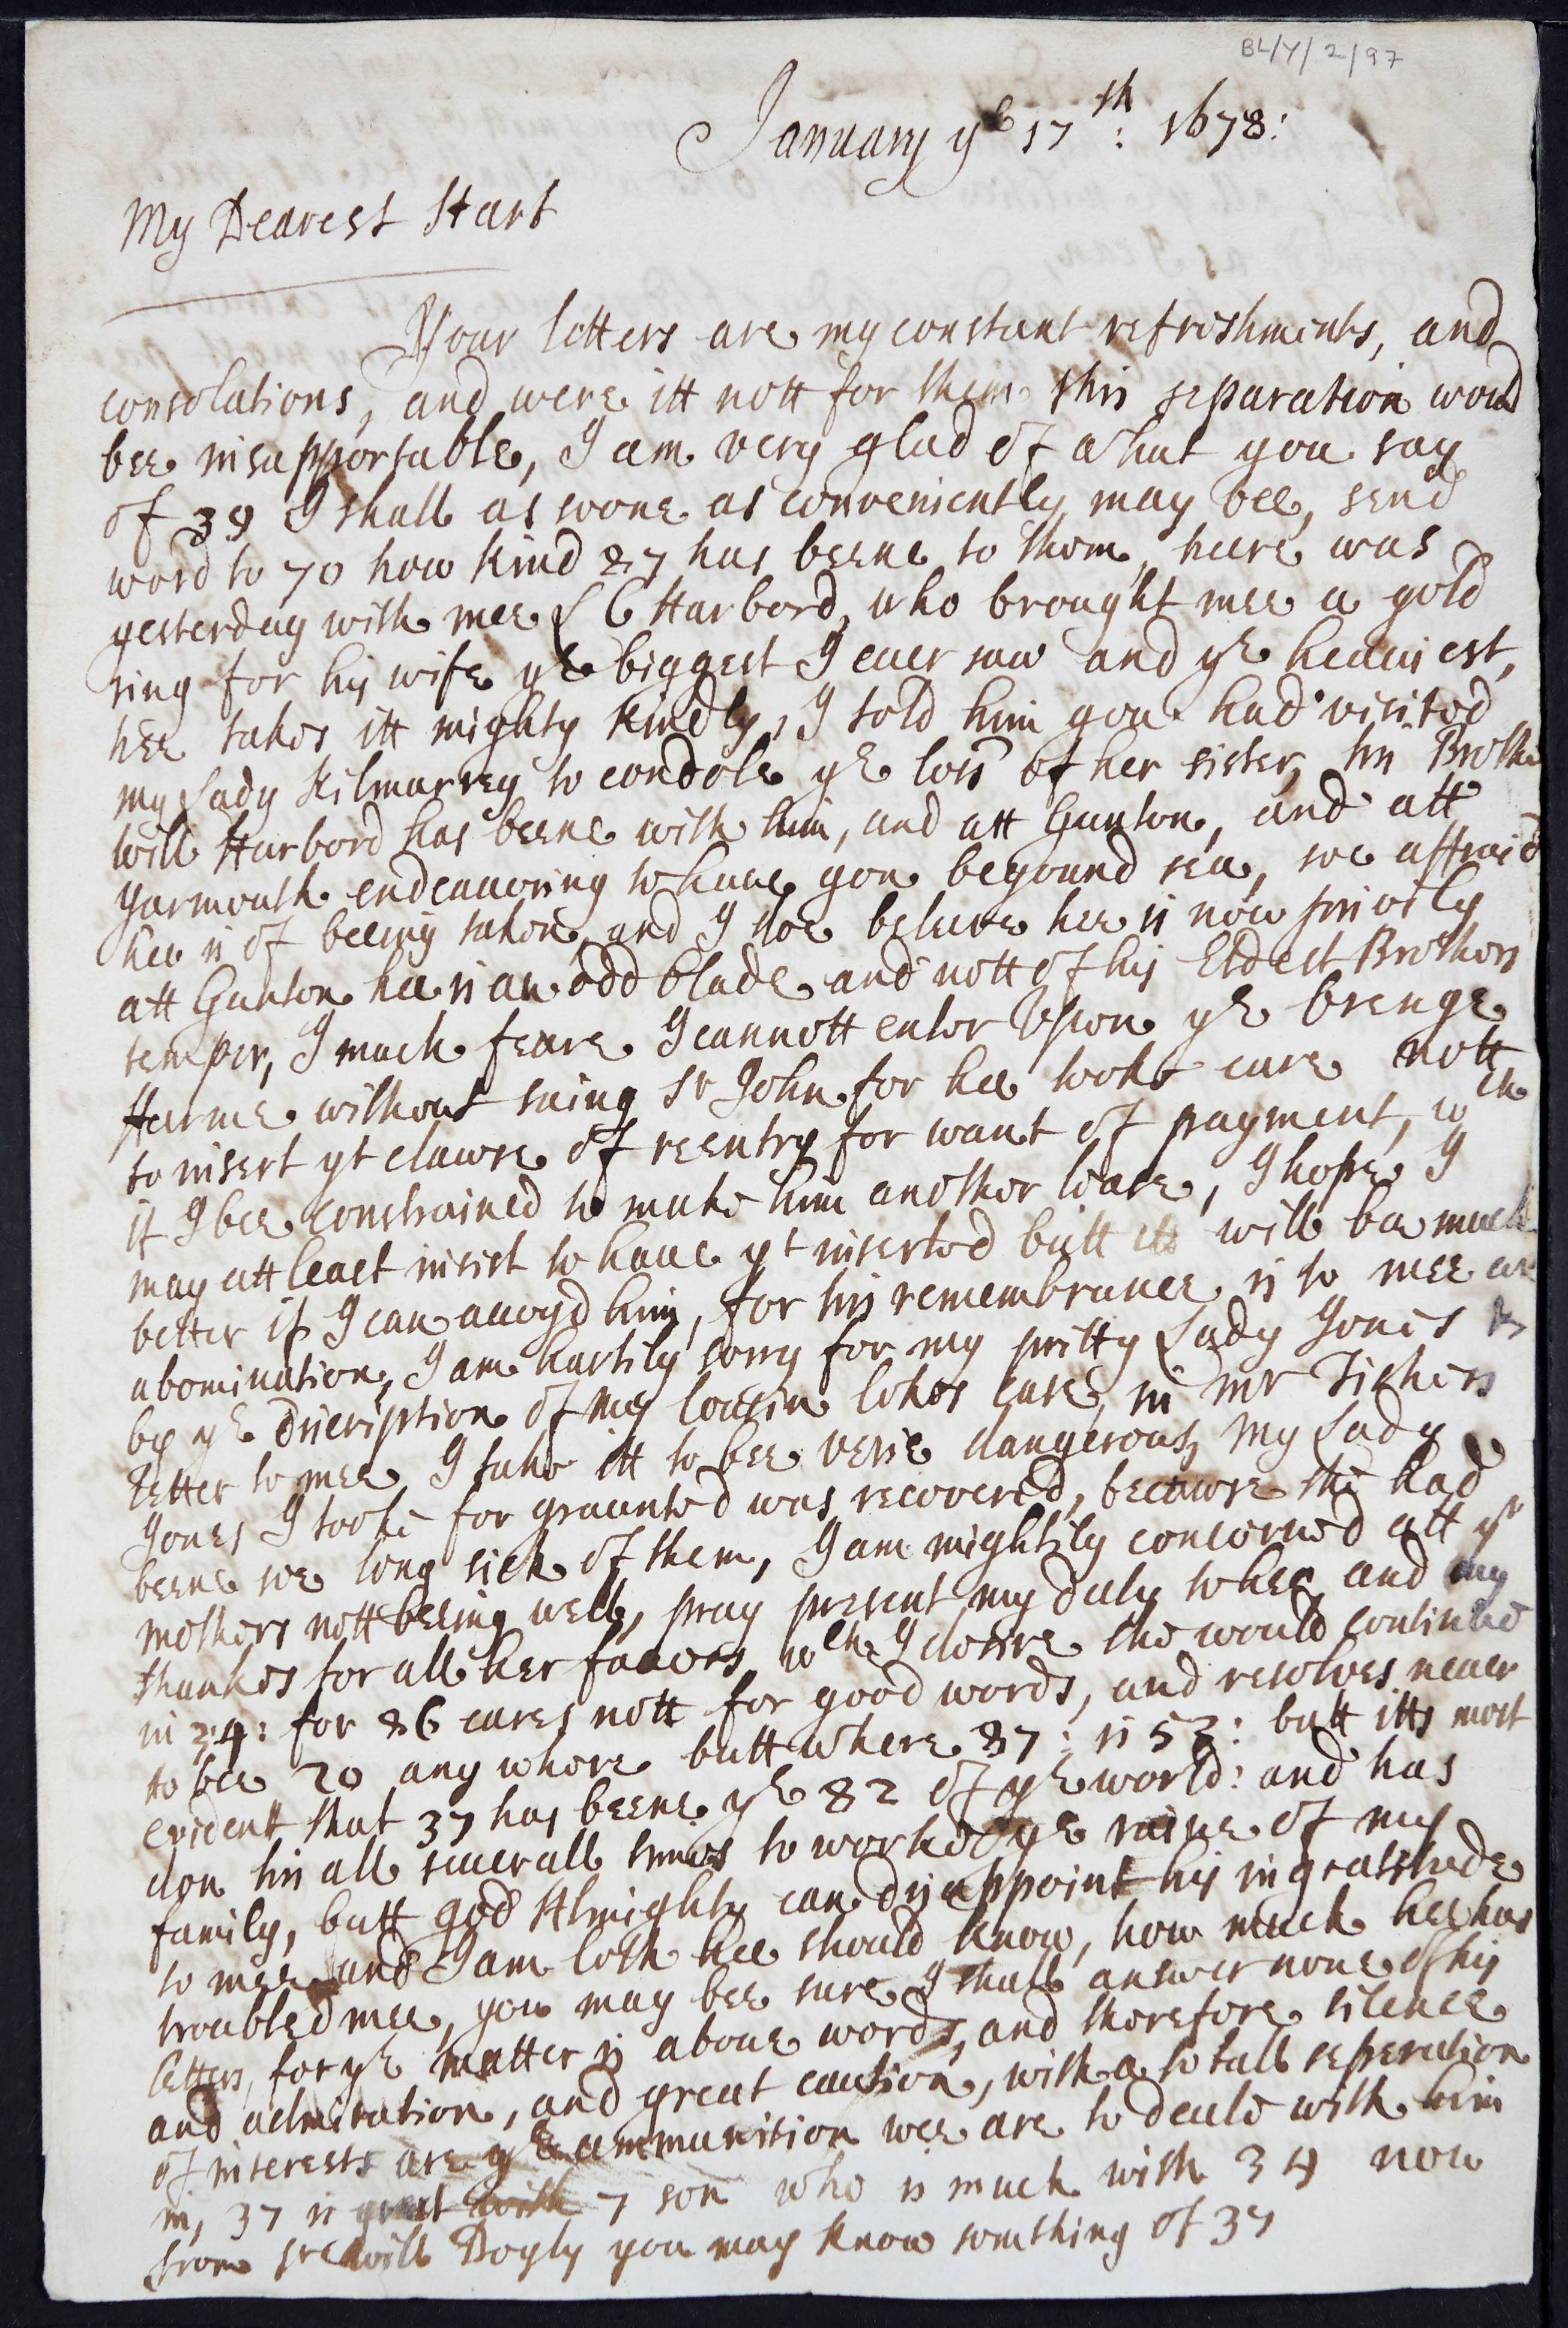 BL/Y/2/97
January ye 17th: 1678:
My Dearest Hart
Your letters are my constant refreshments, and
consolations, and were itt nott for them this separation woud
bee insupportable, I am very glad of what you say
of 39 I shall as soone as conveniently may bee, send
word to 70 how kind 87 has beene to them, heere was
yesterday with mee S C Harbord, who brought mee a gold
ring for his wife ye biggest I euer saw and ye heauiest,
hee takes itt mighty kindly, I told him you had visited
my Lady Kilmurrey to condole ye loss of her sister, his Brother
Will Harbord has beene with him, and att Gunton, and att
Yarmouth endeauoring to haue gon beyound sea, soe affraid
hee is of beeing taken, and I doe beleive hee is now privily
att Gunton hee is an odd blade and nott of his Eldest Brothers
temper, I much feare I cannott enter Vpon ye
Farme without suing Sr John for hee tooke care nott
to insert yt clawse of reentry for want of payment, wch
if I bee constrained to make him another lease, I hope I
may att least insist to haue yt inserted butt itt will bee much
better if I can auoyd him, for his remembrance is to mee an
abomination, I am hartily sorry for my pritty Lady Jones &
by ye discription of my Cousin Cokes case, in mr Fishers
letter to mee I take itt to bee verie dangerous, my Lady
Jones I tooke for graunted was recovered, becawse she had
beene soe long sick of them, I am mightily concerned att yr
mothers nott beeing well, pray present my duty to her, and my
thankes for all her fauors wch I desire she would continue
in 34: for 86 cares nott for good words, and resolves neuer
to bee 20 any where butt where 87: is 53: butt itts most
evident that 37 has beene ye 82 of ye world: and has
don his all seuerall times to worke ye ruine of my
family, butt god Almighty can disappoint his ingratitude
to mee and I am loth hee should know, how much hee has
troubled mee, you may bee sure I shall answer none of his
letters, for ye matter is aboue words, and therefore silence
and admiration, and great caution, with a totall seperation
of interests are ye ammunition wee are to deale with him
in, 37 is great with 7 son who is much with 34 now
from Will Doyly you may know somthing of 37